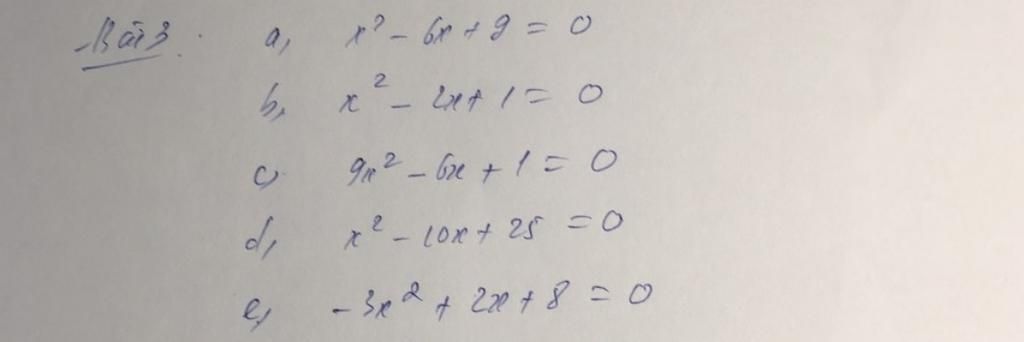 Bài 3. a, x² - 6x + 9 = 0
b, x² - 2x + 1 = 0
c, 9x² - 6x + 1 = 0
d, x² - 10x + 25 = 0
e, -3x² + 2x + 8 = 0